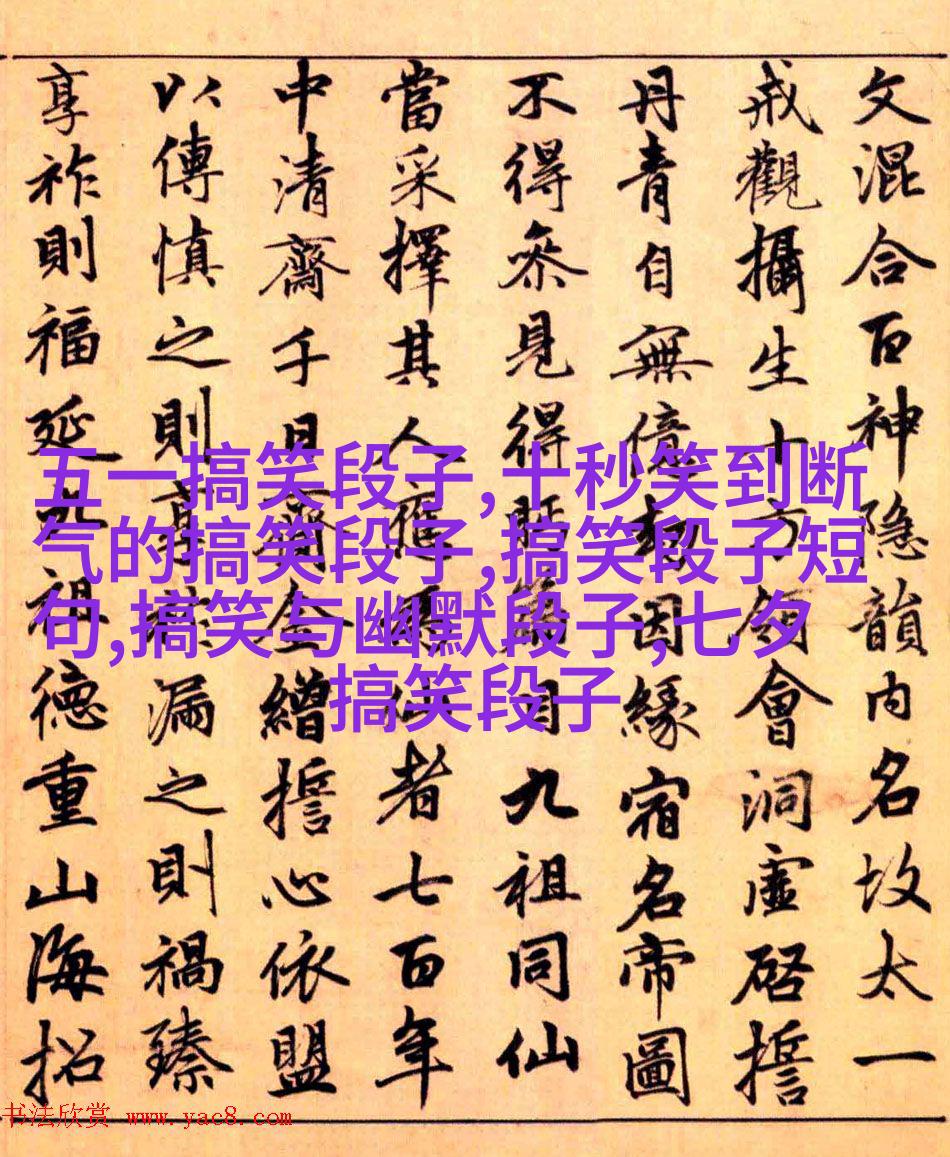 文混合百神隐韻内名故太一
戒觀攝生十方領會洞虚啓誓
丹青自無億劫因緣宿名帝圖
不得叅見得眄篇目九祖同仙
當采擇其人應仙者七百年
中清齋千日齎金繒誓心依盟
以傳慎之則享漏之則禍臻
享祚則福延九祖德重山海招
五一搞笑段子,十秒笑到断
气的搞笑段子,搞笑段子短
句,搞笑与幽默段子,七夕
搞笑段子
书法欣赏 www.yac8.com